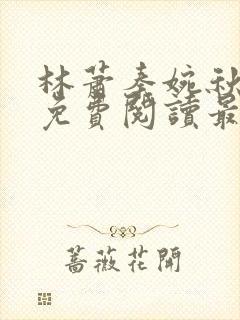 林萧秦婉秋
免費閱讀最
蔷薇花開